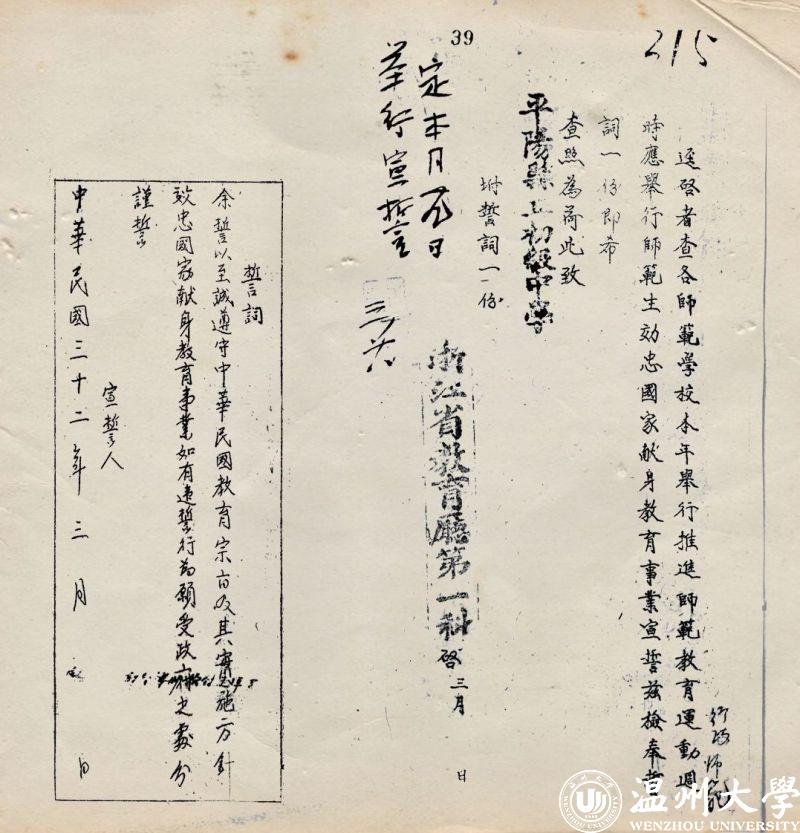 39
215
逕啓者查各師範學校本年舉行推進師範教育運動週
時應舉行師範生効忠國家献身教育事業宣誓兹檢奉誓
詞一份即希
查照為荷此致
平陽縣立初級中學
坿誓詞一份
浙江省教育廳第一科啓 三月 日
定本月 日
舉行宣誓
誓詞
余誓以至誠遵守中華民國教育宗旨及其實施方針
效忠國家献身教育事業如有違誓行為願受政府之處分
謹誓
宣誓人
中華民國三十二年三月 日
温州大學
WENZHOU UNIVERSITY